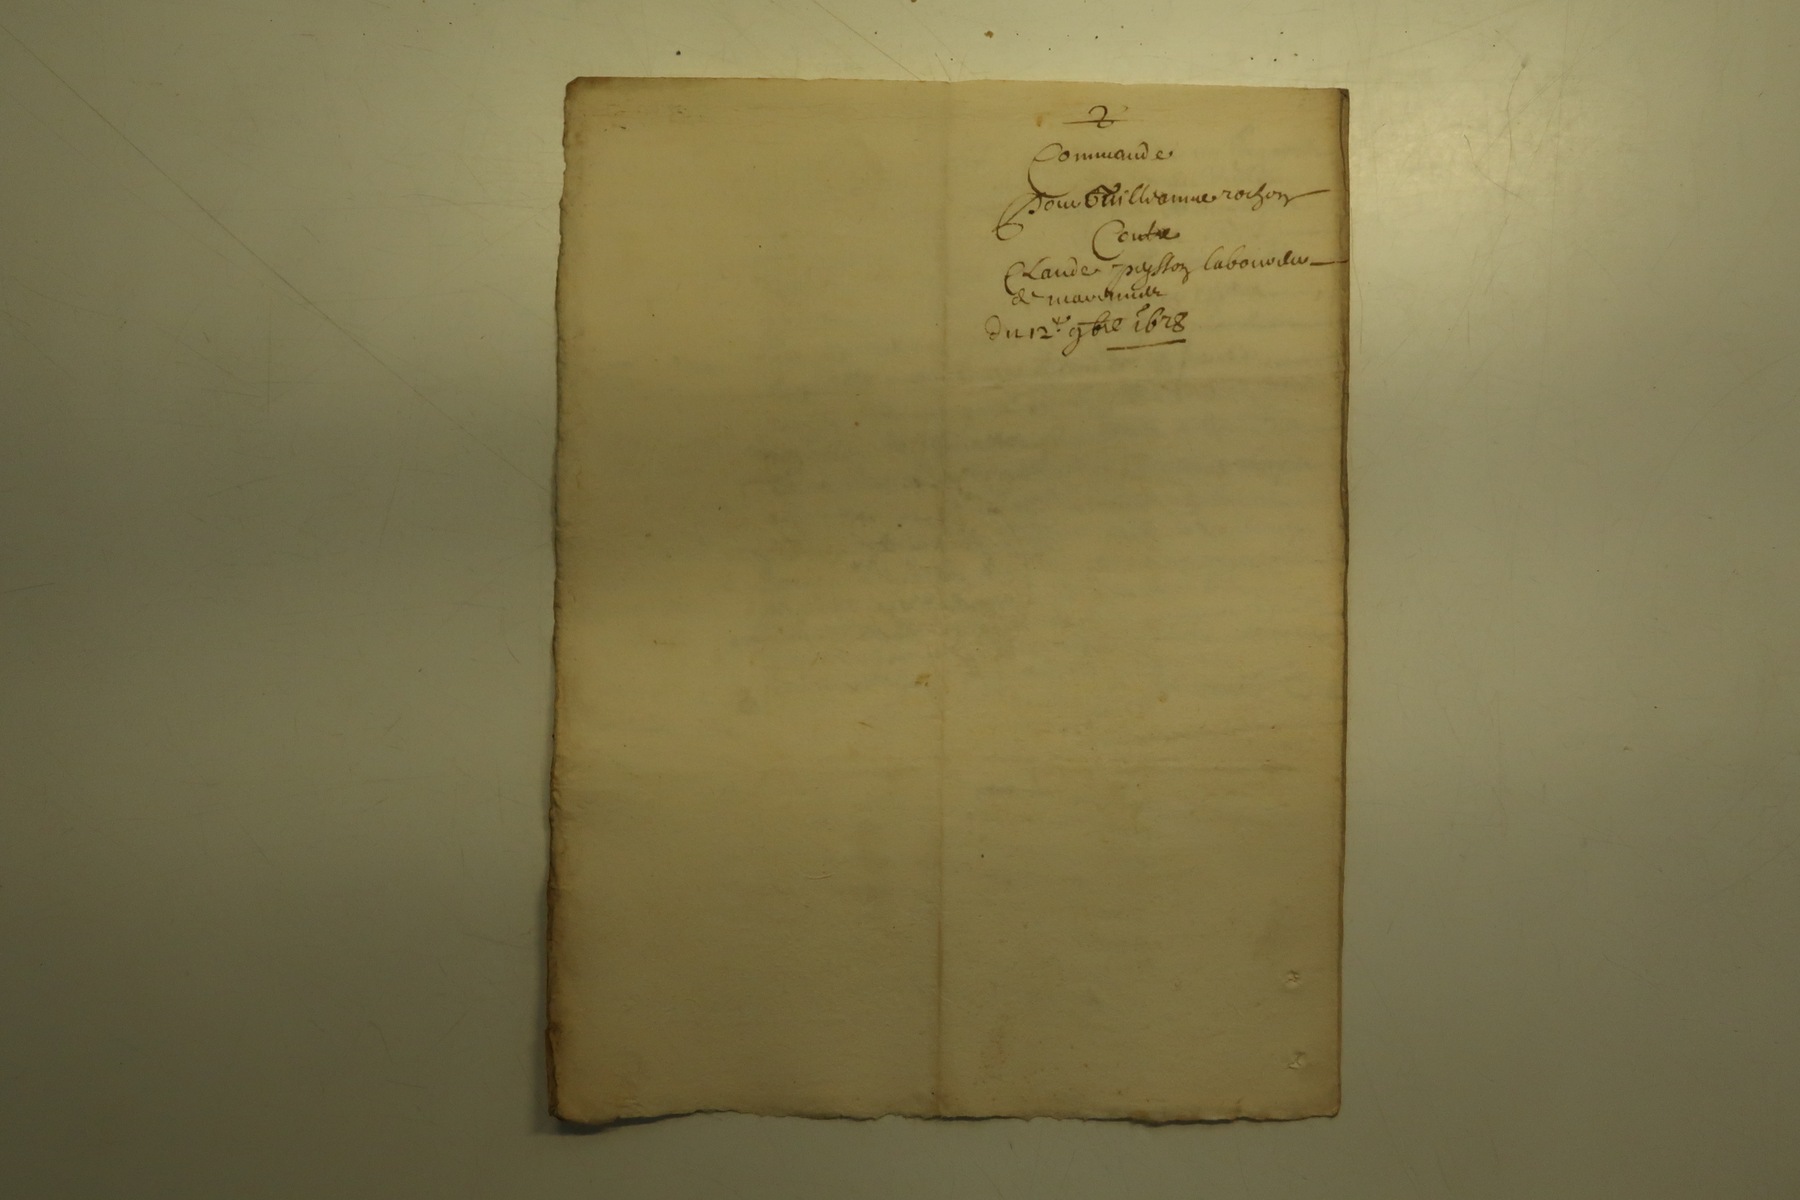 2
Commande
Pour Guilliaume rochon
Contre
Claude laboureur
de
du 12e 9bre 1678